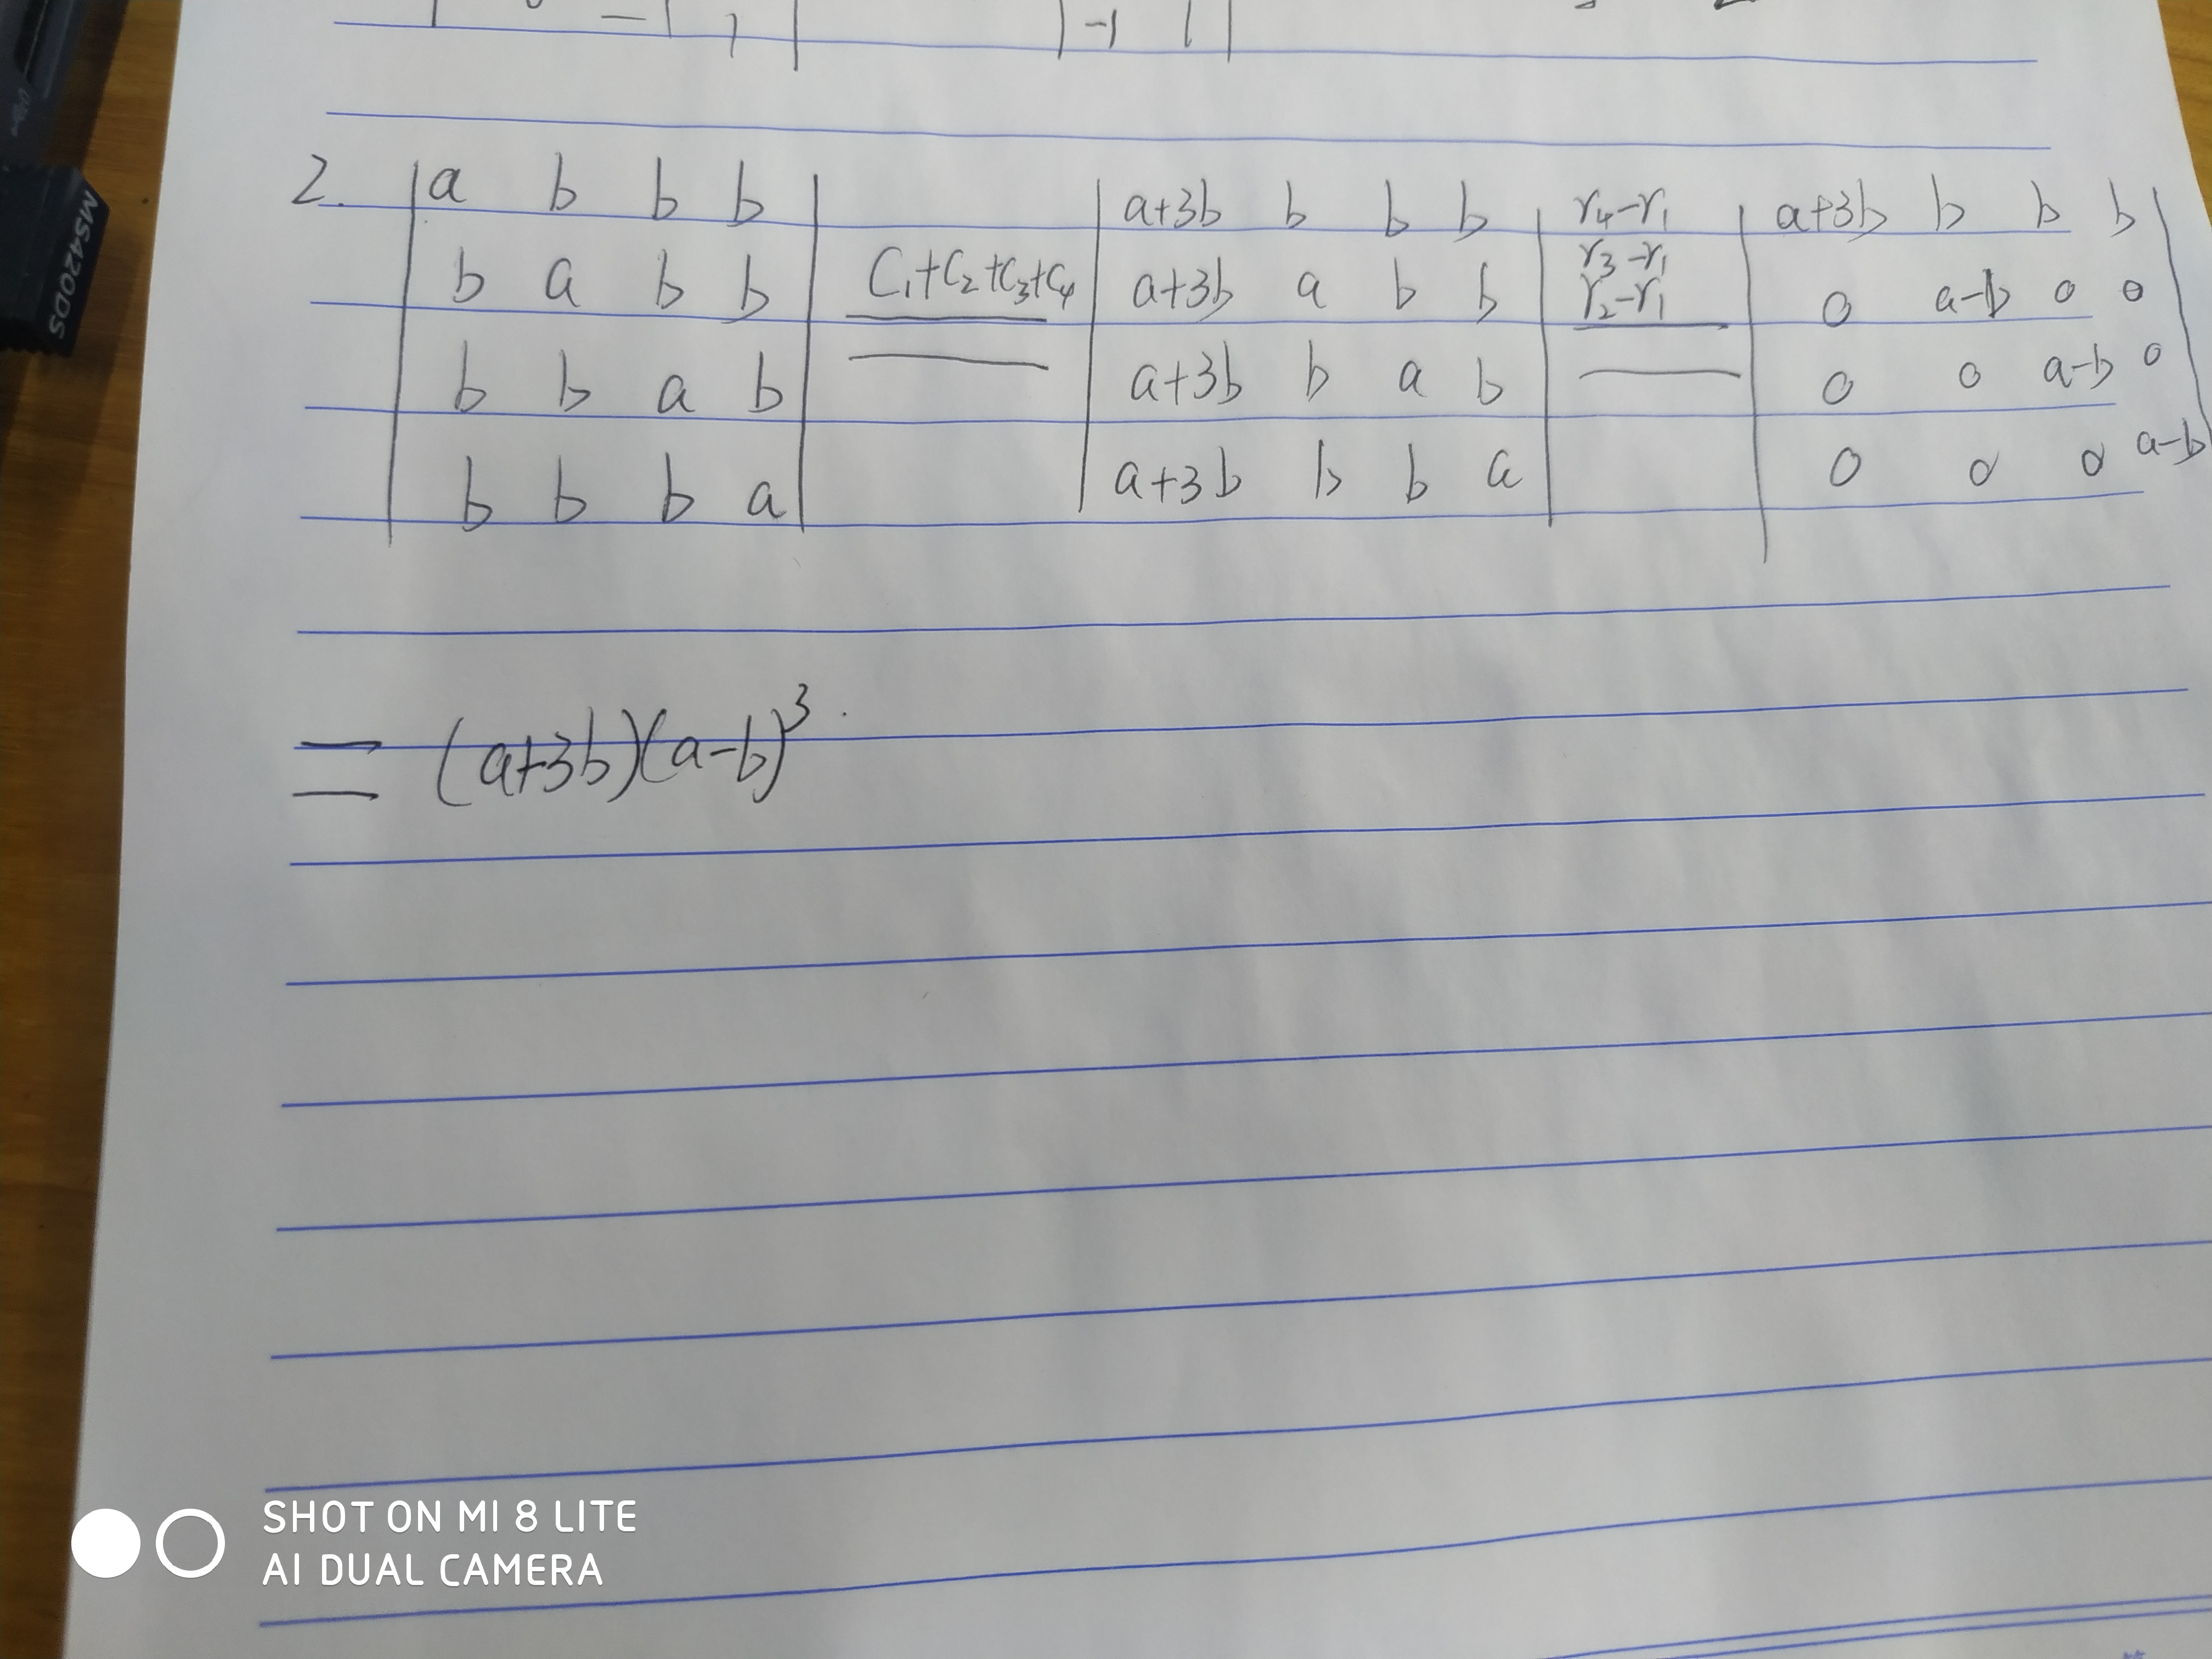 -1 1
2. a b b b
b a b b
b b a b
b b b a
C₁+C₂+C₃+C₄
a+3b b b b
a+3b a b b
a+3b b a b
a+3b b b a
r₄-r₁
r₃-r₁
r₂-r₁
a+3b b b b
0 a-b 0 0
0 0 a-b 0
0 0 0 a-b
= (a+3b)(a-b)³.
MS420DS
SHOT ON MI 8 LITE
AI DUAL CAMERA